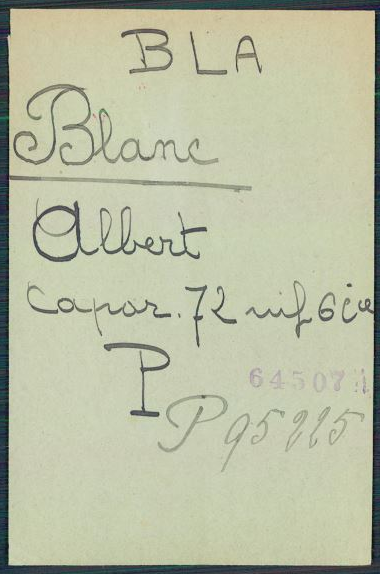 BLA
Blanc
Albert
Capor. 72 inf 6 cie
P
64507
P 95225